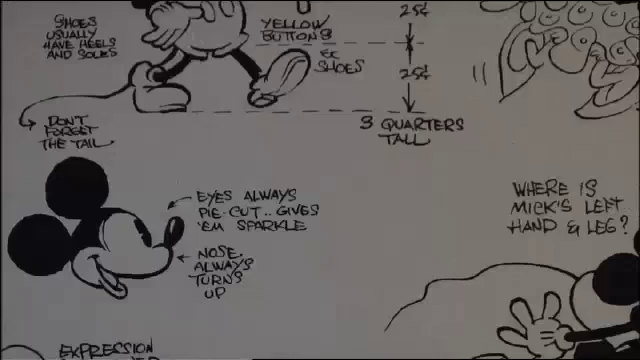 SHOES
USUALLY
HAVE HEELS
AND SOLES
YELLOW
BUTTONS
&
SHOES
25¢
25¢
3 QUARTERS
TALL
DON'T
FORGET
THE TAIL
EYES ALWAYS
PIE-CUT.. GIVES
'EM SPARKLE
NOSE
ALWAYS
TURNS
UP
WHERE IS
MICK'S LEFT
HAND & LEG?
EXPRESSION